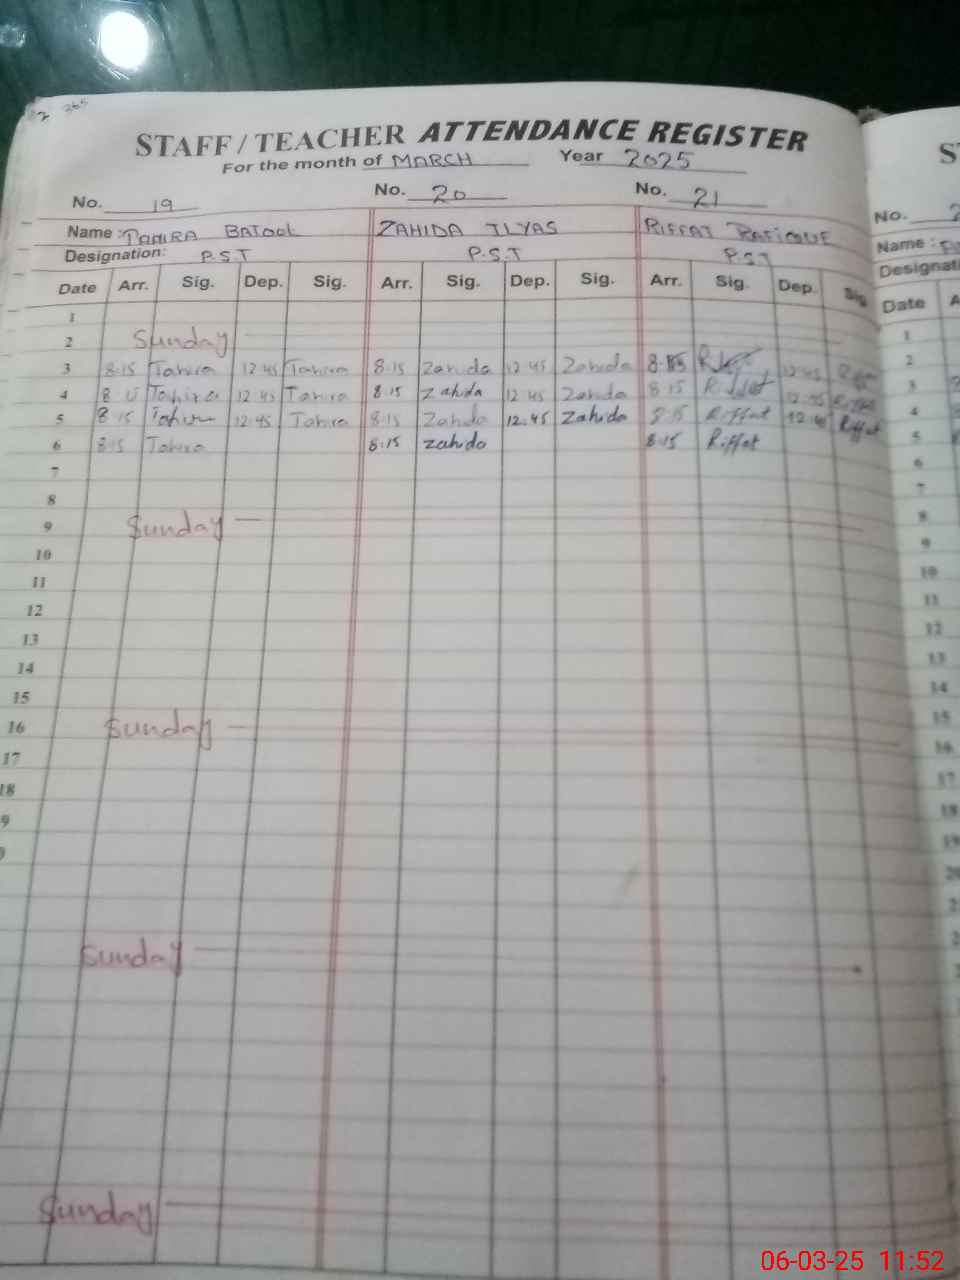 265
STAFF / TEACHER ATTENDANCE REGISTER
For the month of MARCH Year 2025
No. 19 No. 20 No. 21
Name: TAHIRA BATOOL ZAHIDA ILYAS RIFFAT RAFIQUE
Designation: P.S.T P.S.T P.S.T
Date Arr. Sig. Dep. Sig. Arr. Sig. Dep. Sig. Arr. Sig. Dep. Sig
1
2 Sunday
3 8.15 Tahira 12 45 Tahira 8.15 Zahida 12 45 Zahida 12 45
4 Tahira 12 45 Tahira 8.15 Zahida 12 45 Zahida 8 15 Riffat 12 45 Riffat
5 8 15 Tahira 12 45 Tahira 8.15 Zahida 12.45 Zahida 8.15 Riffat 12 45 Riffat
6 8.15 Tahira 8.15 Zahida 8.15 Riffat
7
8
9 Sunday
10
11
12
13
14
15
16 Sunday
17
18
9
Sunday
Sunday
No.
Name :
Designati
Date A
1
2
3
4
5
6
7
8
9
10
11
12
13
14
15
16
17
18
06-03-25 11:52